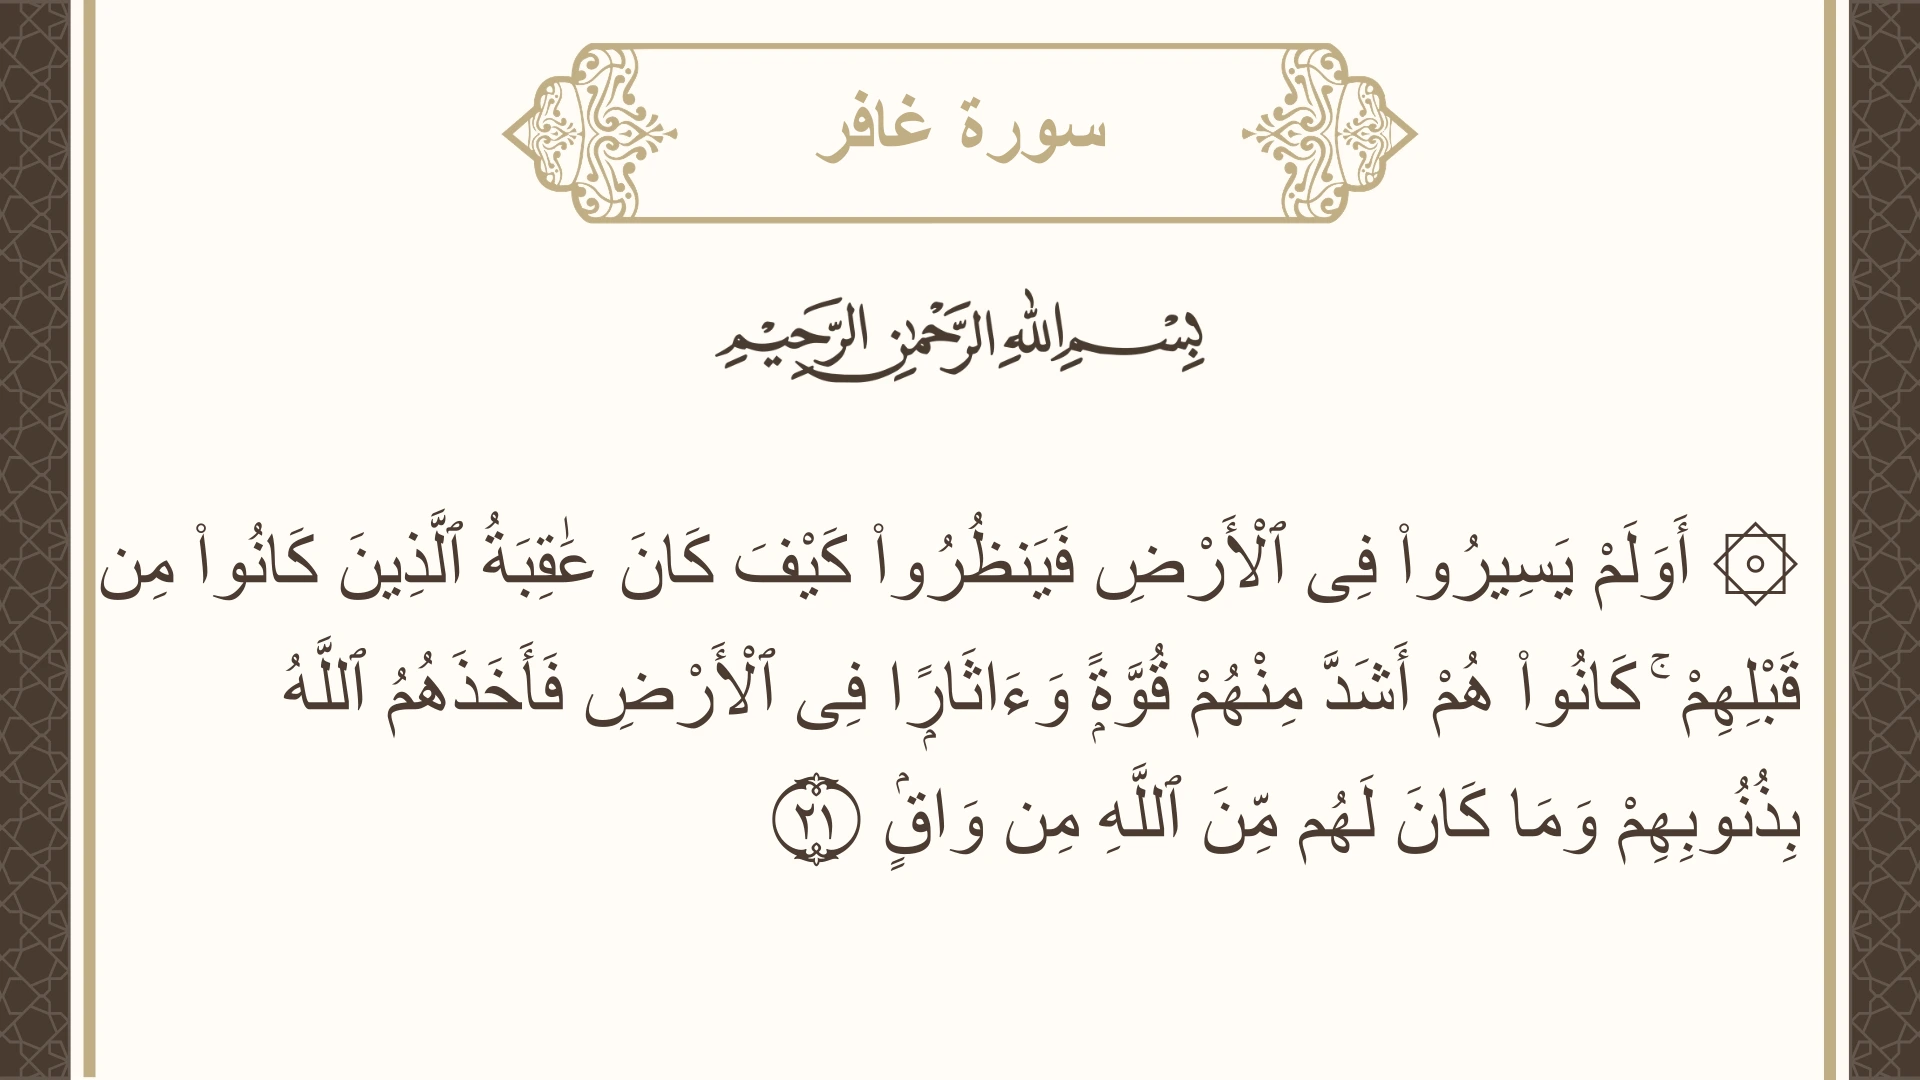 سورة غافر
بِسْمِ اللهِ الرَّحْمٰنِ الرَّحِيْمِ
۞ أَوَلَمْ يَسِيرُوا۟ فِى ٱلْأَرْضِ فَيَنظُرُوا۟ كَيْفَ كَانَ عَٰقِبَةُ ٱلَّذِينَ كَانُوا۟ مِن
قَبْلِهِمْ ۚ كَانُوا۟ هُمْ أَشَدَّ مِنْهُمْ قُوَّةًۭ وَءَاثَارًۭا فِى ٱلْأَرْضِ فَأَخَذَهُمُ ٱللَّهُ
بِذُنُوبِهِمْ وَمَا كَانَ لَهُم مِّنَ ٱللَّهِ مِن وَاقٍۢ ٢١